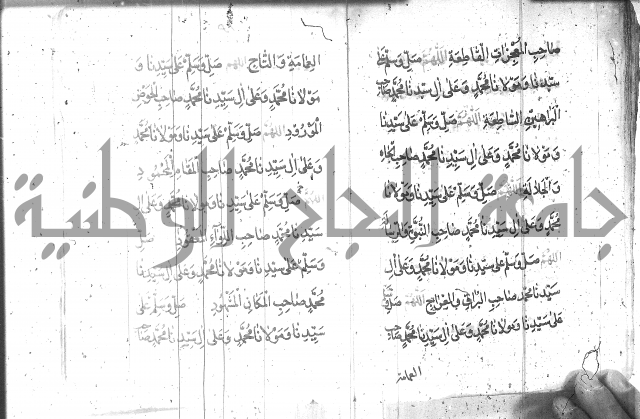 صاحب المعجزات القاطعة اللهم صل وسلم على
سيدنا ومولانا محمد وعلى ال سيدنا محمد صاحب
البراهين الساطعة اللهم صل وسلم على سيدنا
ومولانا محمد وعلى ال سيدنا محمد صاحب الجاه
والجلالة اللهم صل وسلم على سيدنا ومولانا
محمد وعلى ال سيدنا محمد صاحب النبوة والرسالة
اللهم صل وسلم على سيدنا ومولانا محمد وعلى ال
سيدنا محمد صاحب البراق والمعراج اللهم صل و
على سيدنا ومولانا محمد وعلى ال سيدنا محمد صاحب
العمامة
العمامة والتاج اللهم صل وسلم على سيدنا و
مولانا محمد وعلى ال سيدنا محمد صاحب الحوض
المورود اللهم صل وسلم على سيدنا ومولانا محمد
وعلى ال سيدنا محمد صاحب المقام المحمود
اللهم صل وسلم على سيدنا ومولانا محمد وعلى ال
سيدنا محمد صاحب اللواء المعقود صل
وسلم على سيدنا ومولانا محمد وعلى ال سيدنا
محمد صاحب المكان المشهود صل وسلم على
سيدنا ومولانا محمد وعلى ال سيدنا محمد صاحب
جامعة النجاح الوطنية